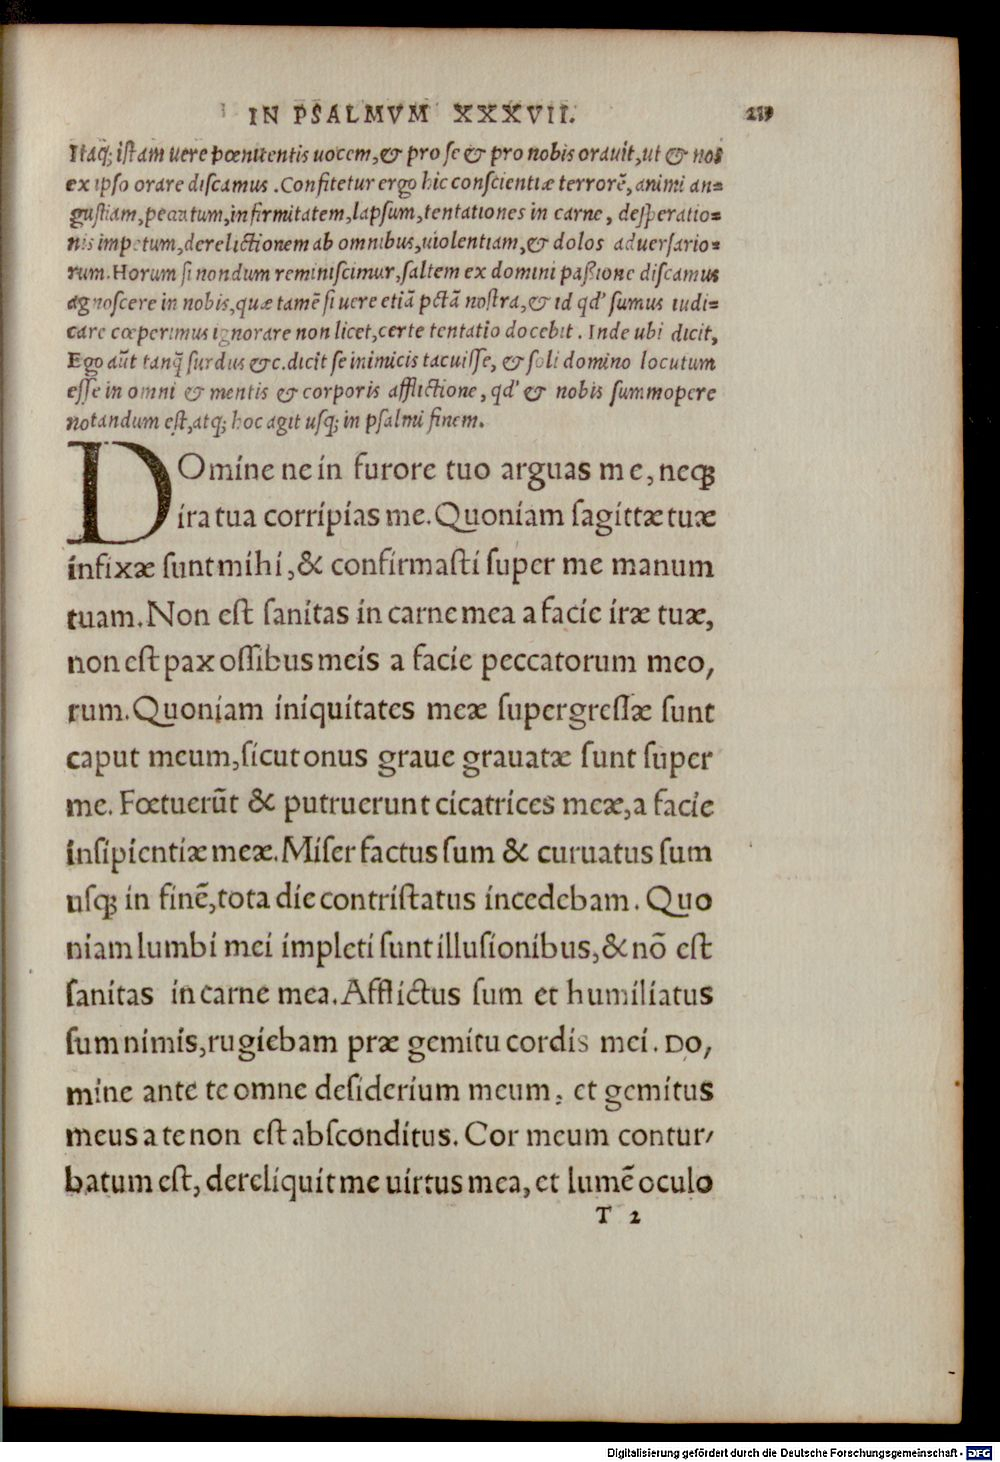 IN PSALMVM XXXVII.
Itaq; istam vere pœnitentis uocem, & pro se & pro nobis orauit, ut & nos
ex ipso orare discamus. Confitetur ergo hic conscientiæ terrorē, animi an=
gustiam, peccatum, infirmitatem, lapsum, tentationes in carne, desperatio=
nis impetum, derelictionem ab omnibus, uiolentiam, & dolos aduersario=
rum. Horum si nondum reminiscimur, saltem ex domini passione discamus
agnoscere in nobis, quæ tamē si uere etiā pctā nostra, & id qd' sumus iudi=
care cœperimus ignorare non licet, certe tentatio docebit. Inde ubi dicit,
Ego aūt tanq̄ surdus &c. dicit se inimicis tacuisse, & soli domino locutum
esse in omni & mentis & corporis afflictione, qd' & nobis summopere
notandum est, atq; hoc agit usq; in psalmi finem.
DOmine ne in furore tuo arguas me, neq;
ira tua corripias me. Quoniam sagittæ tuæ
infixæ sunt mihi, & confirmasti super me manum
tuam. Non est sanitas in carne mea a facie iræ tuæ,
non est pax ossibus meis a facie peccatorum meo,
rum. Quoniam iniquitates meæ supergressæ sunt
caput meum, sicut onus graue grauatæ sunt super
me. Fœtuerūt & putruerunt cicatrices meæ, a facie
insipientiæ meæ. Miser factus sum & curuatus sum
usq; in finē, tota die contristatus incedebam. Quo
niam lumbi mei impleti sunt illusionibus, & nō est
sanitas in carne mea. Afflictus sum et humiliatus
sum nimis, rugiebam præ gemitu cordis mei. DO,
mine ante te omne desiderium meum, et gemitus
meus a te non est absconditus. Cor meum contur/
batum est, dereliquit me uirtus mea, et lumē oculo
T 2
Digitalisierung gefördert durch die Deutsche Forschungsgemeinschaft - DFG